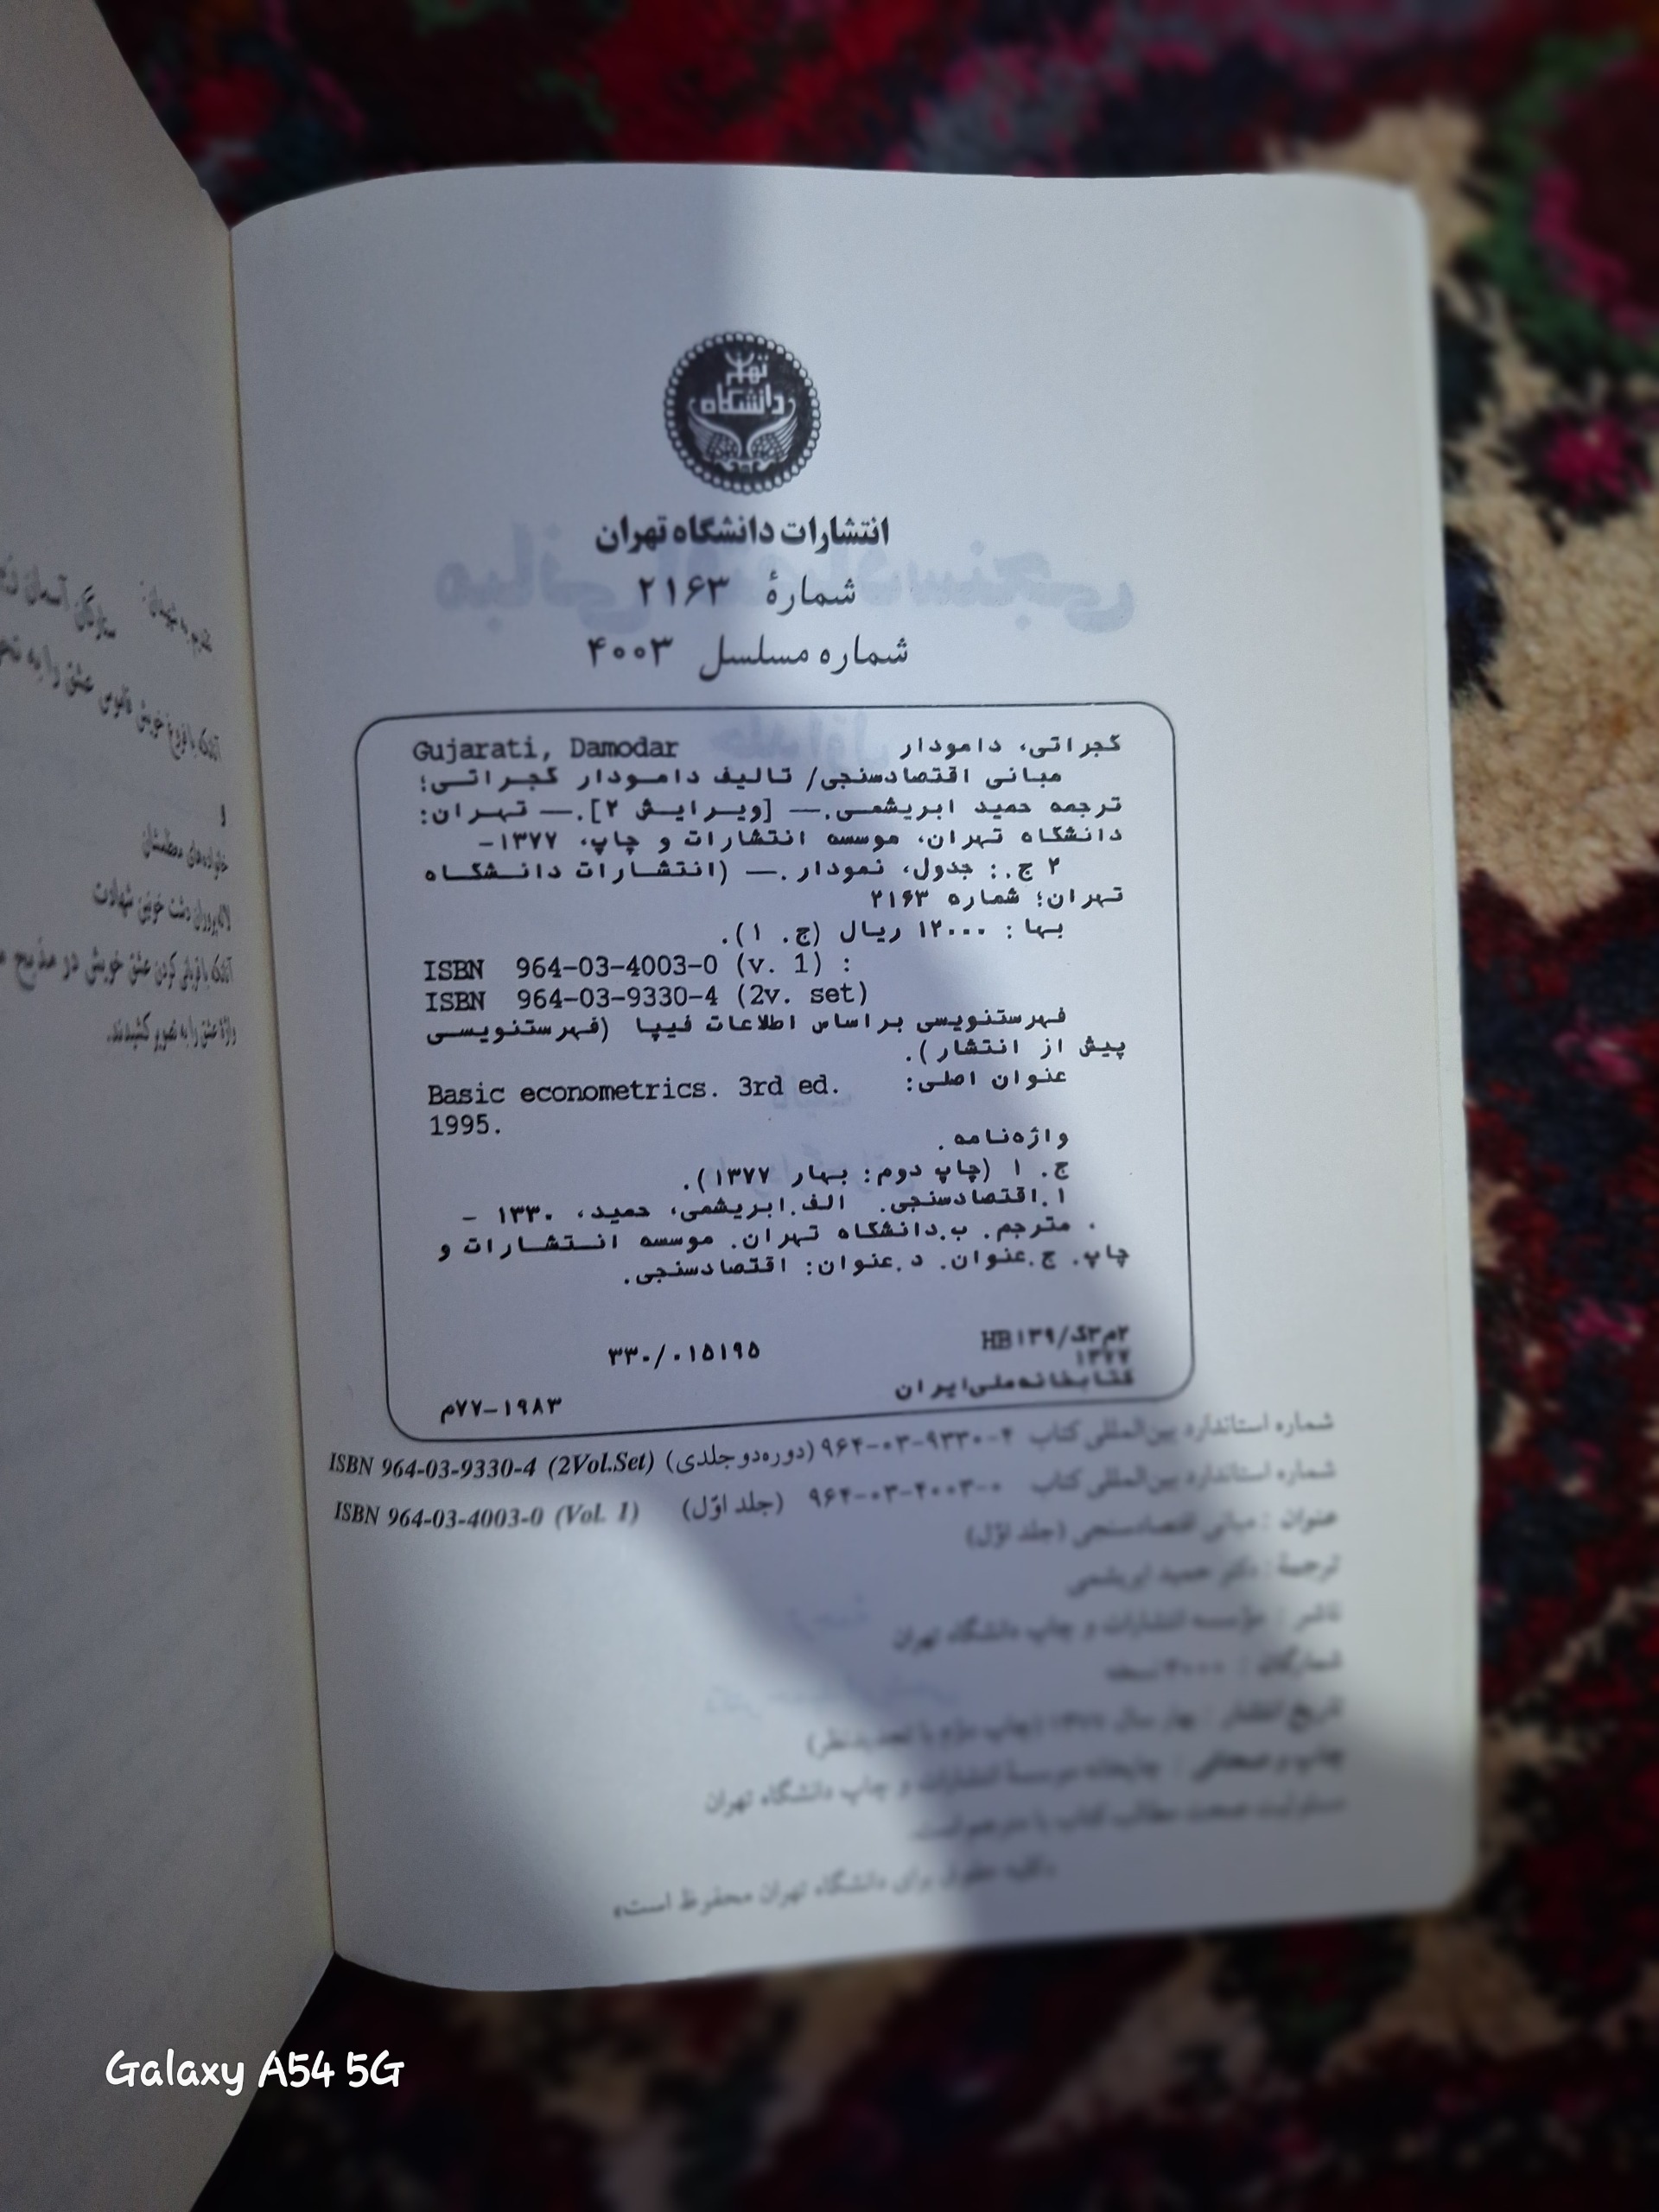 تهران
دانشگاه
انتشارات دانشگاه تهران
شمارهٔ ۲۱۶۳
شماره مسلسل ۴۰۰۳
گجراتی، دامودار Gujarati, Damodar
مبانی اقتصادسنجی/ تالیف دامودار گجراتی؛
ترجمه حمید ابریشمی.— [ویرایش ۲].— تهران:
دانشگاه تهران، موسسه انتشارات و چاپ، ۱۳۷۷-
۲ ج.: جدول، نمودار.— (انتشارات دانشگاه
تهران؛ شماره ۲۱۶۳
بها: ۱۲۰۰۰ ریال (ج. ۱).
ISBN 964-03-4003-0 (v. 1) :
ISBN 964-03-9330-4 (2v. set)
فهرستنویسی براساس اطلاعات فیپا (فهرستنویسی
پیش از انتشار).
عنوان اصلی: Basic econometrics. 3rd ed.
1995.
واژه‌نامه.
ج. ۱ (چاپ دوم: بهار ۱۳۷۷).
۱.اقتصادسنجی. الف.ابریشمی، حمید، ۱۳۳۰ -
. مترجم. ب.دانشگاه تهران. موسسه انتشارات و
چاپ. ج.عنوان. د.عنوان: اقتصادسنجی.
۲م۳گ/HB۱۳۹ ۳۳۰/۰۱۵۱۹۵
۱۳۷۷
کتابخانه ملی ایران م۷۷-۱۹۸۳
شماره استاندارد بین‌المللی کتاب ۴-۹۳۳۰-۰۳-۹۶۴ (دوره دو جلدی) ISBN 964-03-9330-4 (2Vol.Set)
شماره استاندارد بین‌المللی کتاب ۰-۴۰۰۳-۰۳-۹۶۴ (جلد اوّل) ISBN 964-03-4003-0 (Vol. 1)
عنوان : مبانی اقتصادسنجی (جلد اوّل)
ترجمهٔ : دکتر حمید ابریشمی
ناشر : مؤسسه انتشارات و چاپ دانشگاه تهران
شمارگان : ۳۰۰۰ نسخه
تاریخ انتشار : بهار سال ۱۳۷۷ (چاپ دوّم با تجدیدنظر)
چاپ و صحافی : چاپخانه موسسهٔ انتشارات و چاپ دانشگاه تهران
مسئولیت صحت مطالب کتاب با مترجم است.
«کلیه حقوق برای دانشگاه تهران محفوظ است»
خانواده‌های معظمشان
لاله‌پروران دشت خونین شهادت
آنانکه با قربانی کردن عشق خویش در مذبح
واژهٔ عشق را به تصویر کشیدند.
Galaxy A54 5G